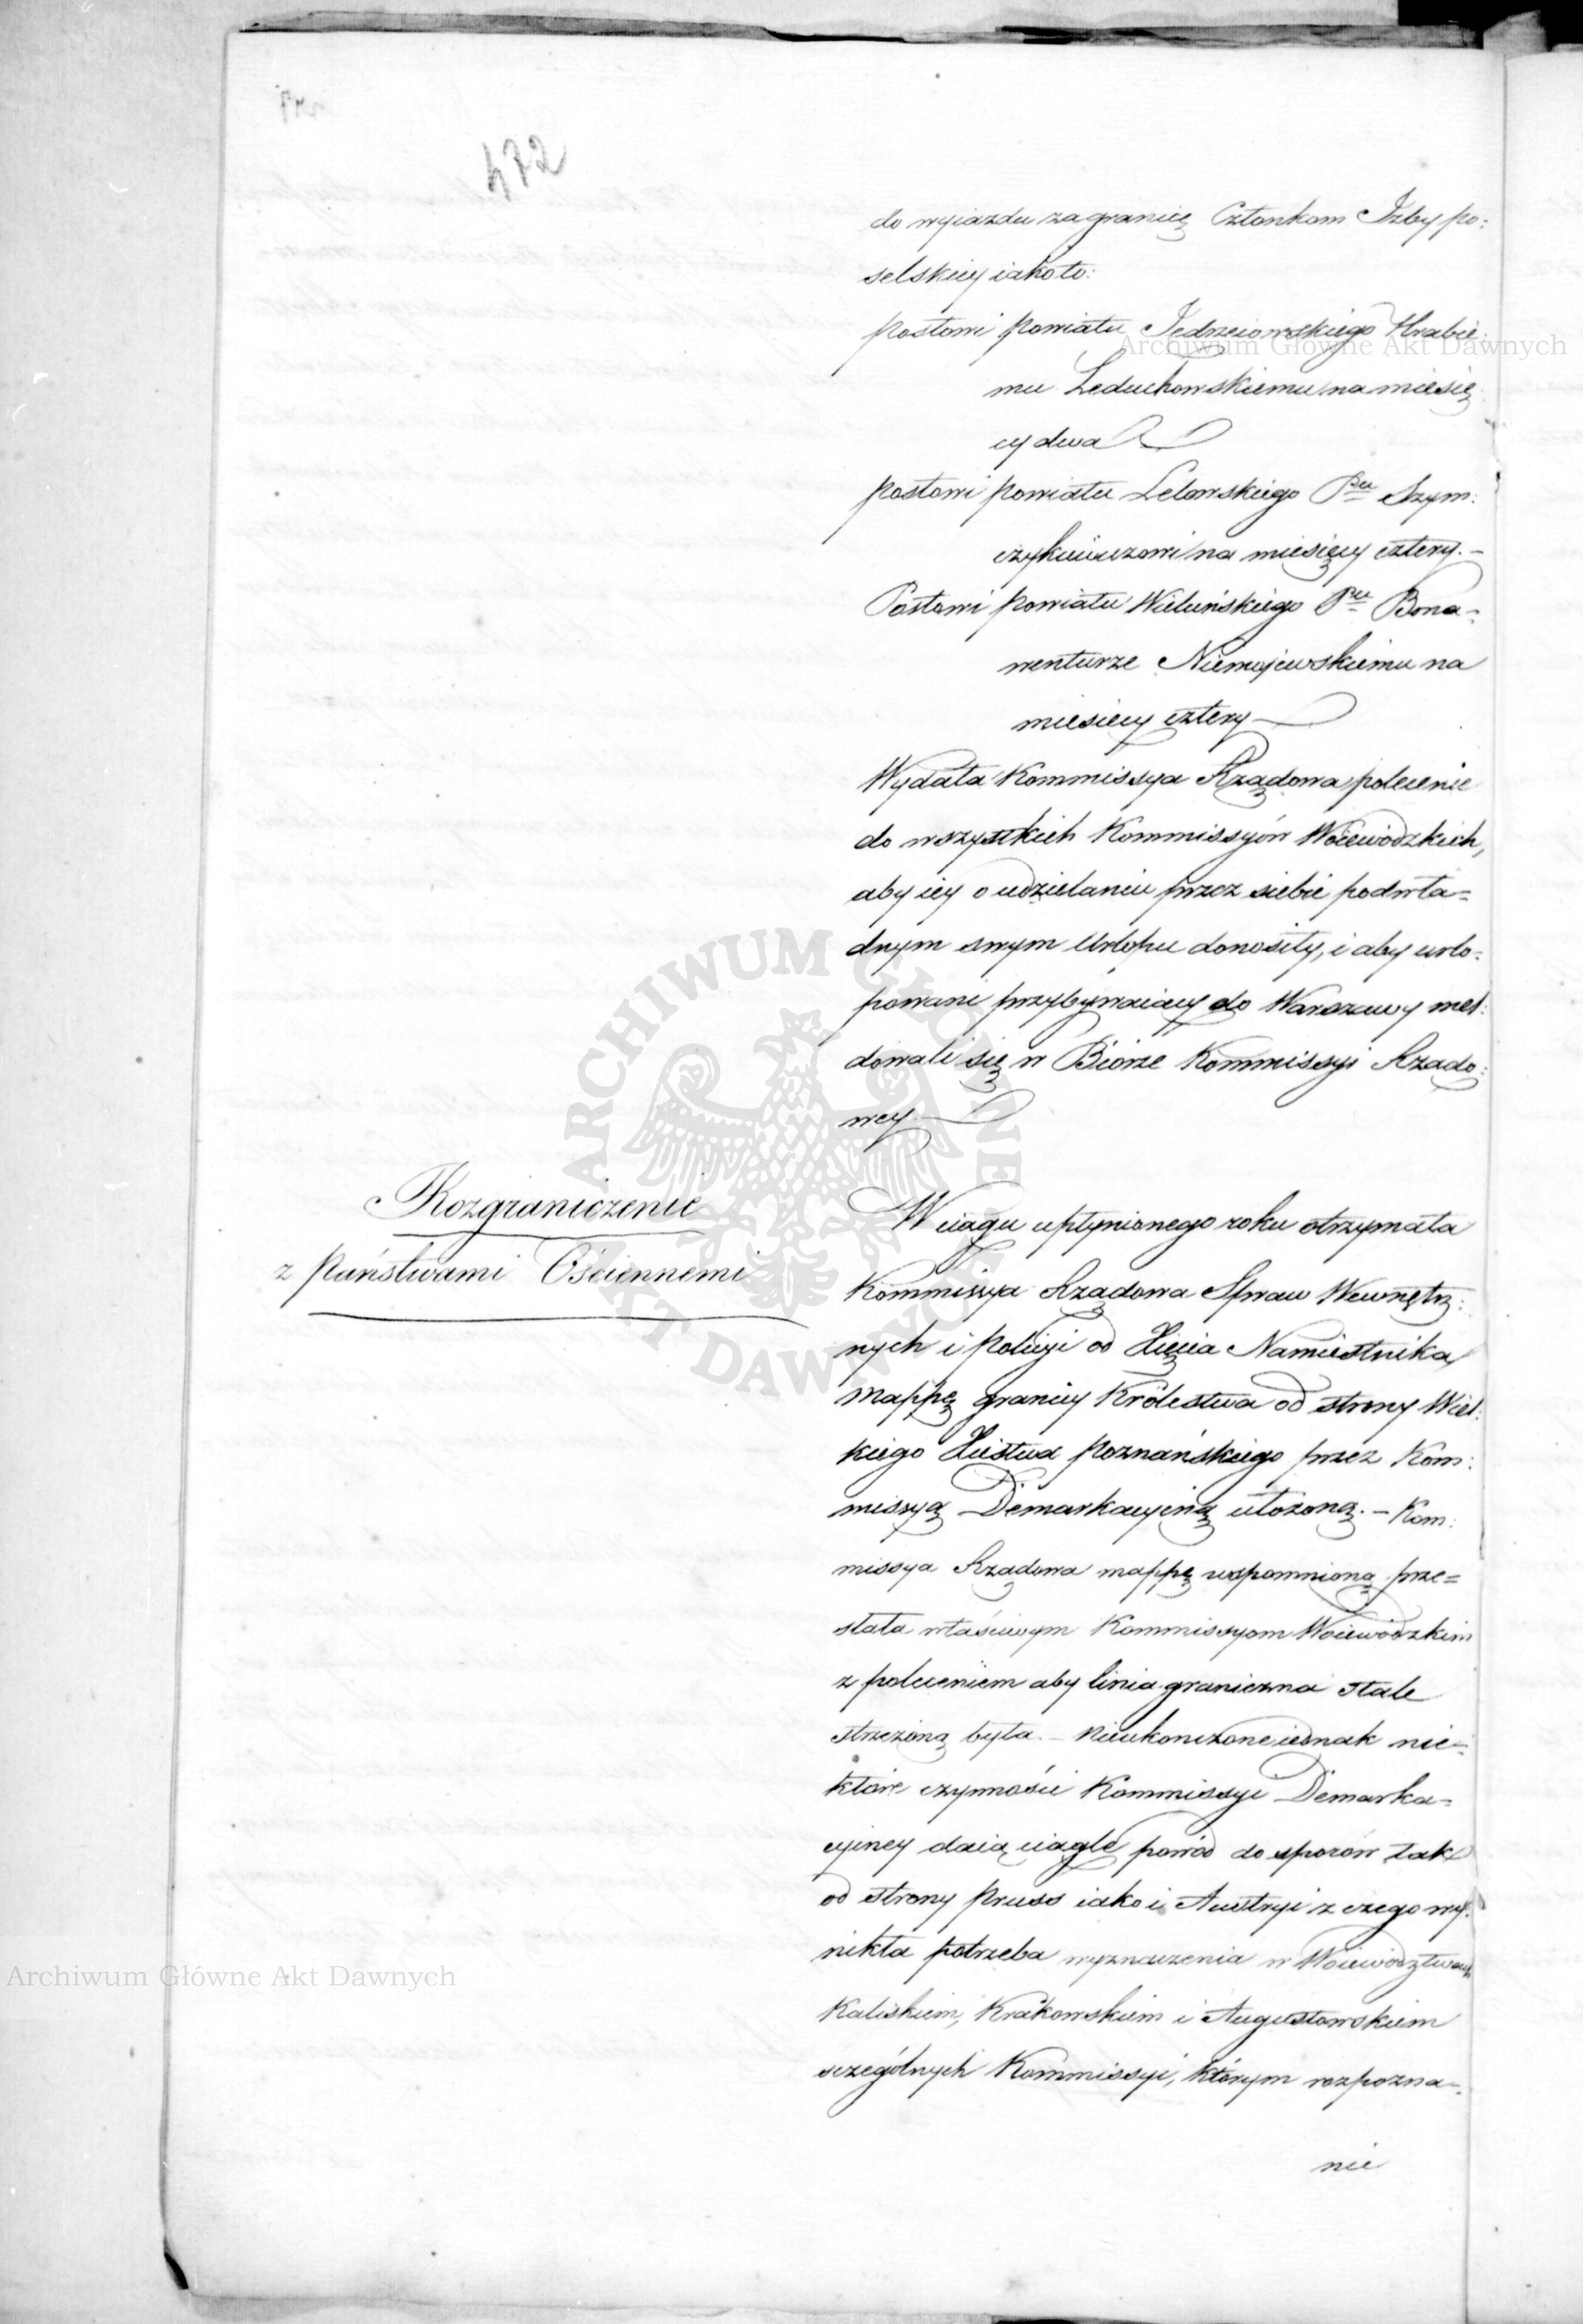 472
do wyiazdu zagranicę Członkom Izby po:
selskiey iako to:
posłowi powiatu Jędrzeiowskiego Hrabie:
mu Leduchowskiemu na miesię
cy dwa
posłowi powiatu Lelowskiego Pu Szym:
czykiewiczowi na miesięcy cztery. —
Posłowi powiatu Wieluńskiego Pu Bona-
wenturze Niemojewskiemu na
miesięcy cztery —
Wydała Kommissya Rządowa polecenie
do wszystkich Kommissyów Woiewódzkich,
aby iey o udzielaniu przez siebie podwła=
dnym swym Urlopu donosiły, i aby urlo-
powani przybywaiący do Warszawy mel:
dowali się w Biórze Kommissyi Rządo:
wey. —
Rozgraniczenie
z państwami Ościennemi
W ciągu upłynionego roku otrzymała
Kommissya Rządowa Spraw Wewnętrz:
nych i Policyi od Xięcia Namiestnika
mappę granicy Królestwa od strony Wiel:
kiego Xięstwa Poznańskiego przez Kom:
missyą Demarkacyiną ułożoną. — Kom:
missya Rządowa mappę wspomnioną prze=
słała właściwym Kommissyom Woiewódzkim
z poleceniem aby linia graniczna stale
strzeżoną była. — Nieukończone iednak nie-
które czynności Kommissyi Demarka-
cyiney daią ciągle powód do sporów tak
od strony Pruss iako i Austryi z czego wy:
nikła potrzeba wyznaczenia w Woiewództwach
Kaliskiem, Krakowskiem i Augustowskiem
sczególnych Kommissyi, którym rozpozna-
nie
Archiwum Główne Akt Dawnych
Archiwum Główne Akt Dawnych
ARCHIWUM GŁÓWNE AKT DAWNYCH